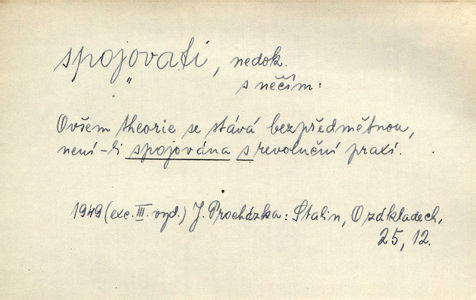 spojovati, nedok.
s něčím:
Ovšem theorie se stává bezpředmětnou,
není-li spojována s revoluční praxí.
1949 (exc. III. vyd.) J. Procházka: Stalin, O základech,
25, 12.